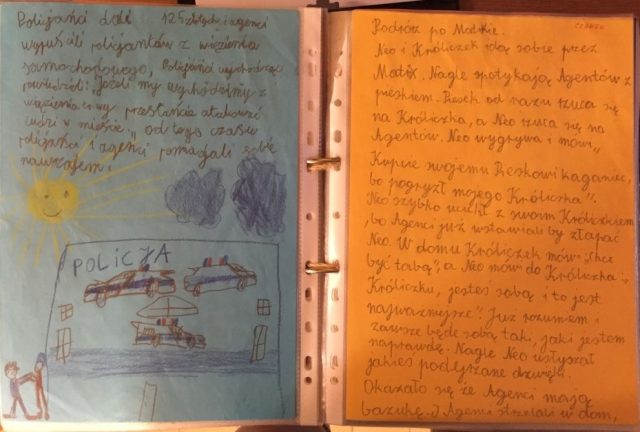 Policjanci dali 125 złotych i agenci
wypuścili policjantów z więzienia
samochodowego, Policjanci wychodząc
powiedzieli "Jeżeli my wychodzimy z
więzienia to wy przestańcie atakować
ludzi w mieście", od tego czasu
policjanci i agenci pomagali sobie
nawzajem!
POLICJA
Podróż po Matrixie.
Neo i Króliczek idą sobie przez
Matix. Nagle spotykają Agentów z
pieskiem. Piesek od razu rzuca się
na Króliczka, a Neo rzuca się na
Agentów. Neo wygrywa i mówi „
Kupcie swojemu Pieskowi kaganiec,
bo pogryzł mojego Króliczka".
Neo szybko uciekł z swoim Króliczkiem
bo Agenci już wstawali by złapać
Neo. W domu Króliczek mówi "chce
być tobą", a Neo mówi do Króliczka:
Króliczku, jesteś sobą i to jest
najważniejsze". Już rozumiem i
zawsze będę sobą taki, jaki jestem
naprawdę. Nagle Neo usłyszał
jakieś podejrzane dzwięki.
Okazało się że Agenci mają
bazukę. Agenci strzelali w dom,